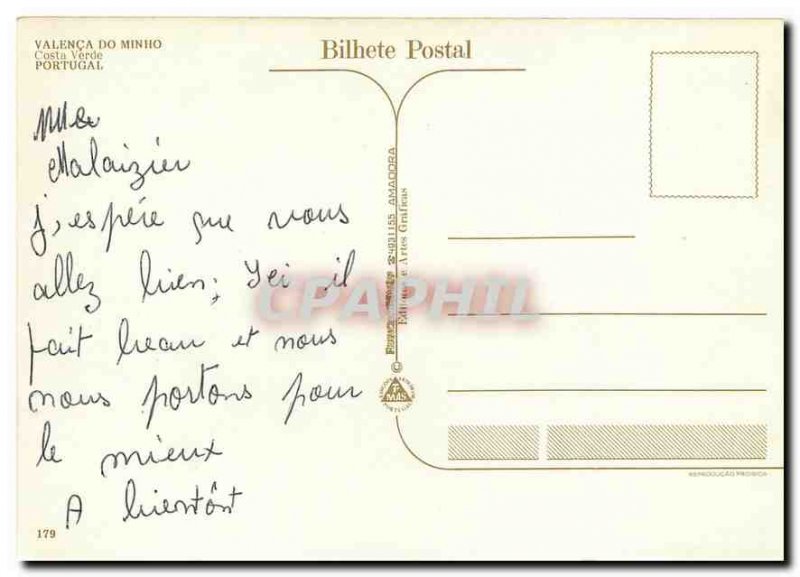 VALENÇA DO MINHO
Costa Verde
PORTUGAL
Bilhete Postal
Mme
Malaizier
j, espére que vous
allez bien; Ici il
fait beau et nous
nous portons pour
le mieux
A bientôt
179
AMADORA
Edições e Artes Gráficas
©
PORTUGAL
REPRODUÇÃO PROIBIDA
CPAPHIL